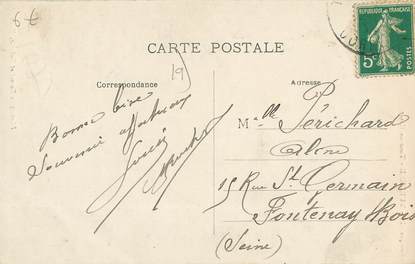 6€
REPUBLIQUE FRANÇAISE
5c
POSTES
CARTE POSTALE
19
Correspondance
Adresse
Bonne bise
Souvenir affectueux
Mlle Périchard
15 Rue St Germain
Fontenay s/ Bois
(Seine)